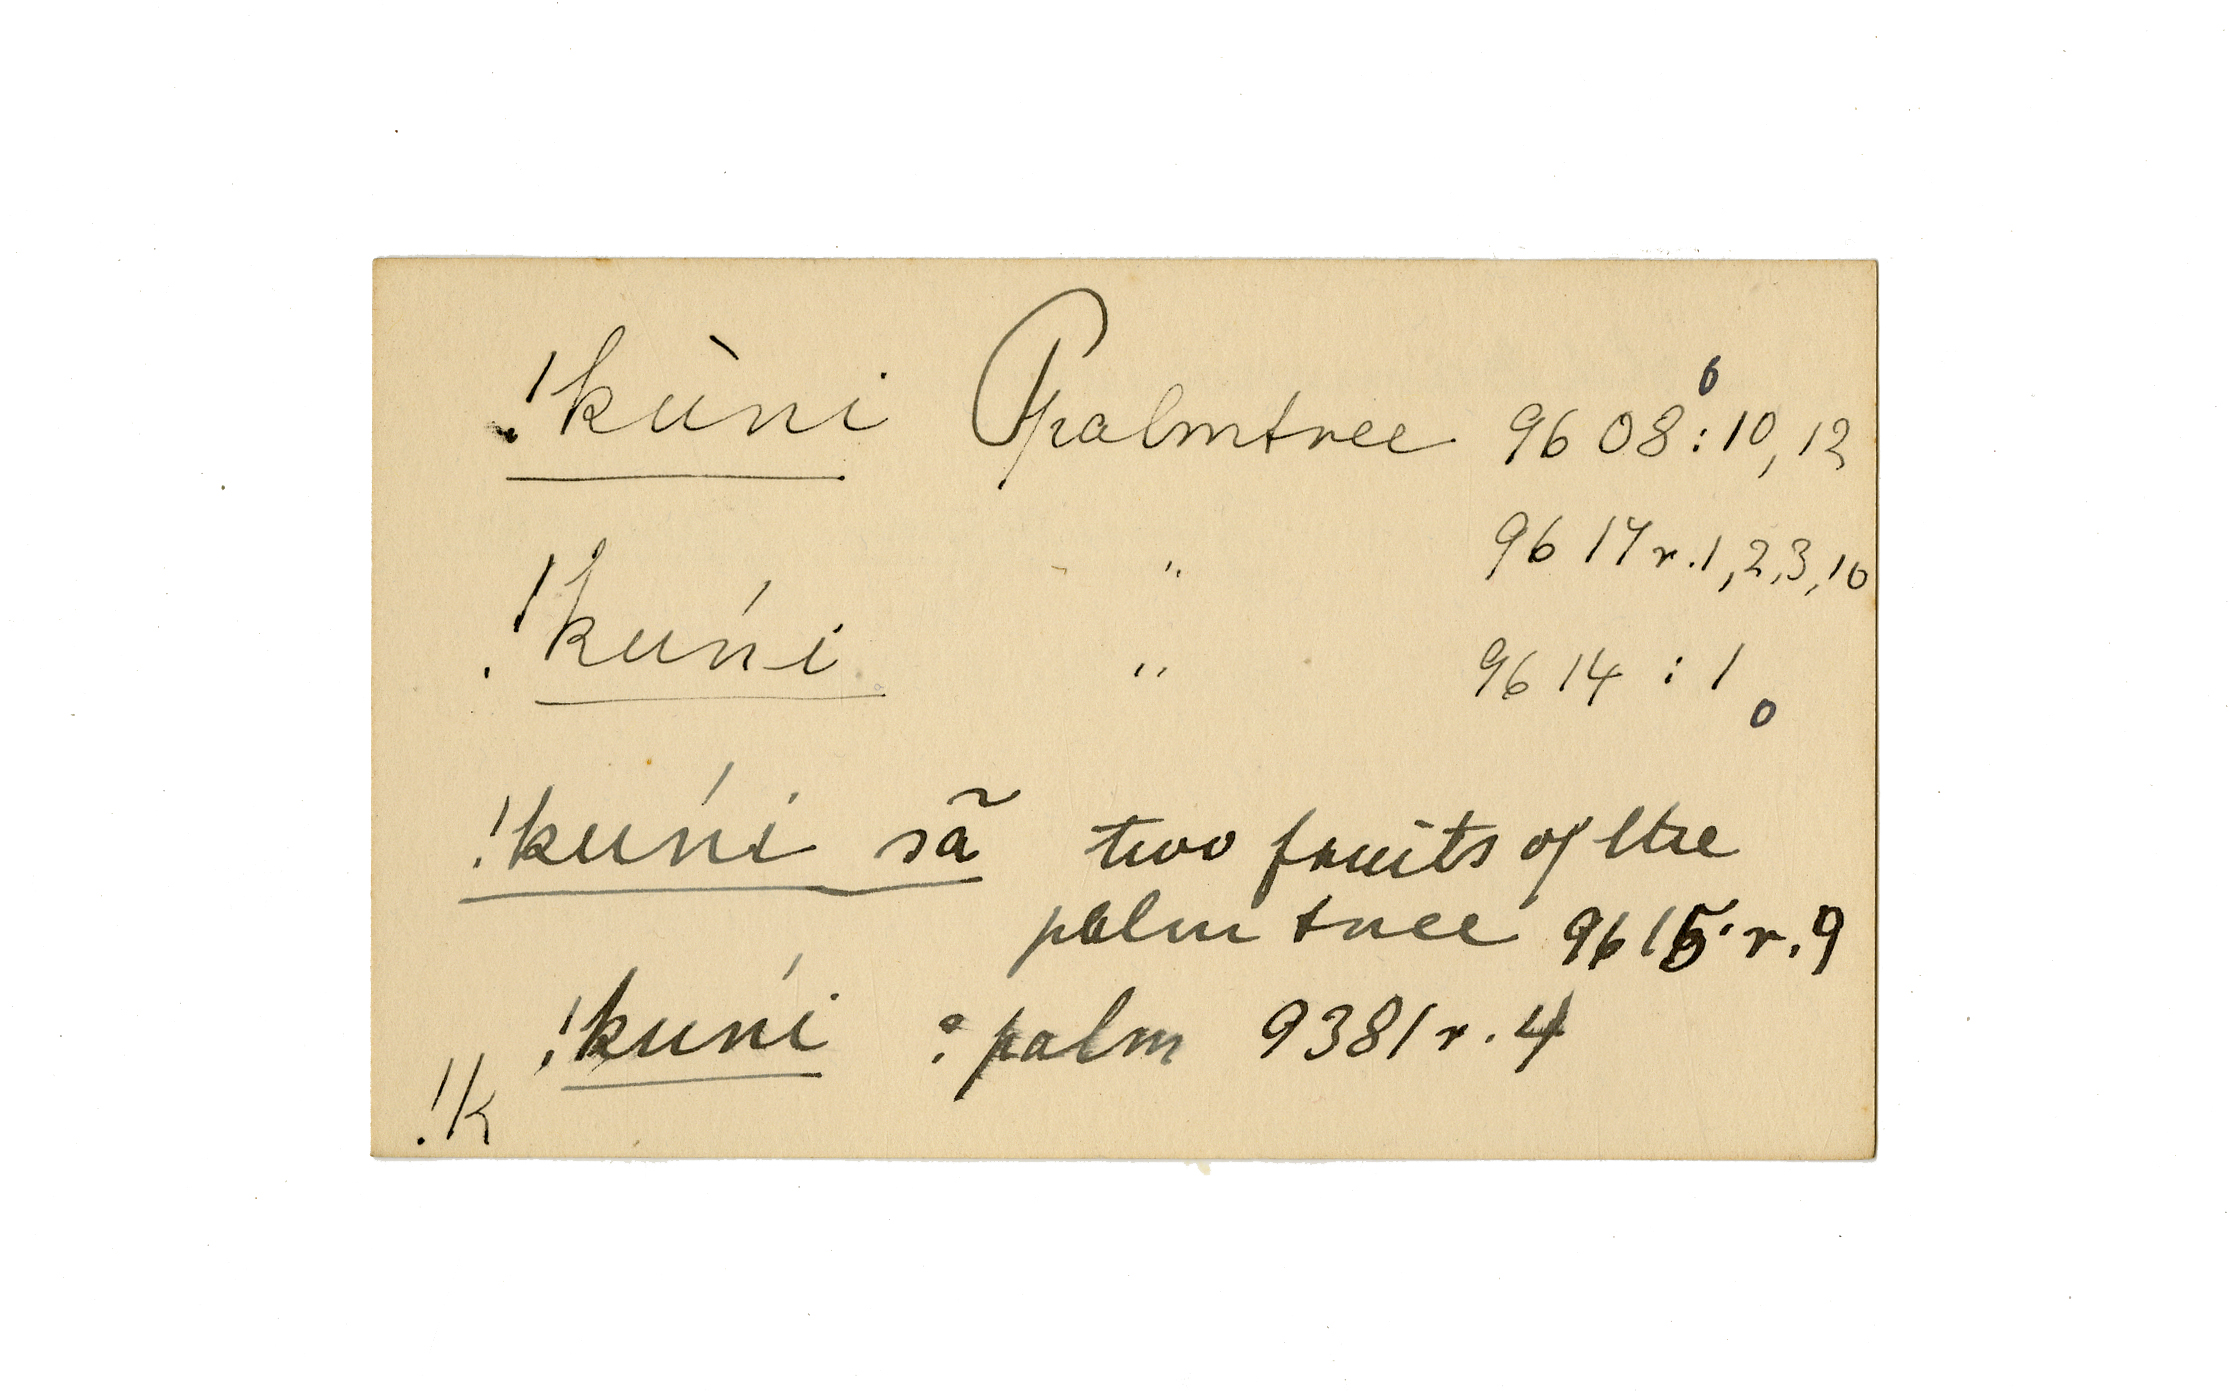 !kùni Palmtree 9608:6 10, 12
" 9614 r. 1, 2, 3, 10
!kuńi " 9614 : 10
!kuńi sã two fruits of the
palm tree 9615 r. 9
!kuńi : palm 9381 r. 4
!k